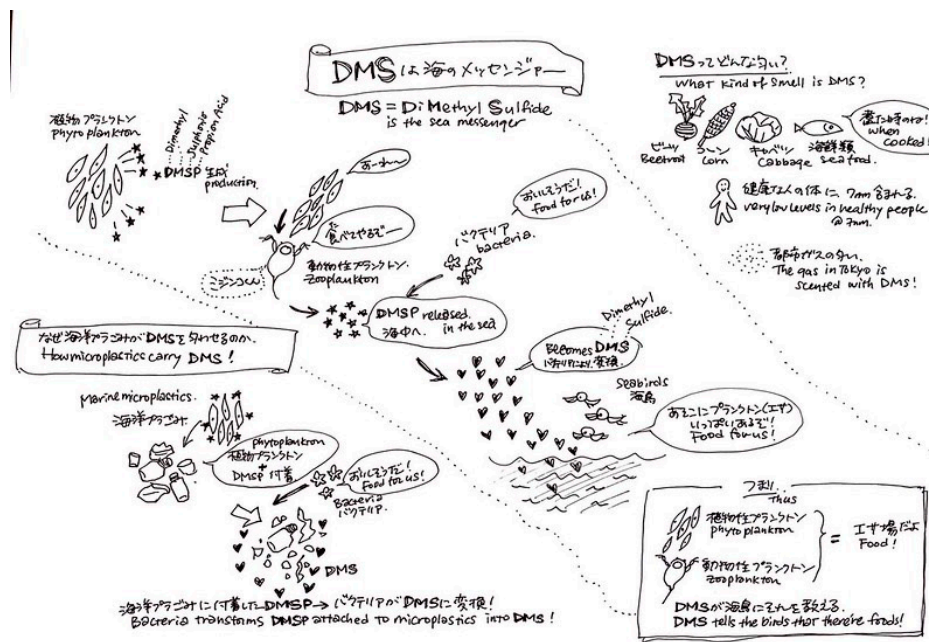 DMSは海のメッセンジャー
DMS = DiMethyl Sulfide
is the sea messenger
植物プランクトン
phytoplankton
Dimethyl
Sulphonio
Propion Acid
DMSP 生成
production
あ〜れ〜
食べてやるぞー
ミジンコくん
動物性プランクトン
Zooplankton
おいしそうだ!
Food for us!
バクテリア
bacteria
DMSP released
海中へ in the sea
Dimethyl
Sulfide
Becomes DMS
バクテリアにより変換
Seabirds
海鳥
あそこにプランクトン(エサ)
いっぱいあるぞ!
Food for us!
DMSってどんな匂い?
What kind of smell is DMS?
ビーツ
Beetroot
コーン
Corn
キャベツ
Cabbage
海鮮類
seafood
煮た時のね!
when
cooked!
健康な人の体に、7nm含まれる
very low levels in healthy people
@ 7nm
都市ガスの匂い
The gas in Tokyo is
scented with DMS!
なぜ海洋プラごみがDMSを匂わせるのか
How microplastics carry DMS!
Marine microplastics
海洋プラごみ
phytoplankton
植物プランクトン
+
DMSP 付着
おいしそうだ!
Food for us!
Bacteria
バクテリア
DMS
海洋プラごみに付着したDMSP→バクテリアがDMSに変換!
Bacteria transforms DMSP attached to microplastics into DMS!
つまり
Thus
植物性プランクトン
phytoplankton
動物性プランクトン
Zooplankton
= エサ場だよ
Food!
DMSが海鳥にそれを教える
DMS tells the birds that there're foods!